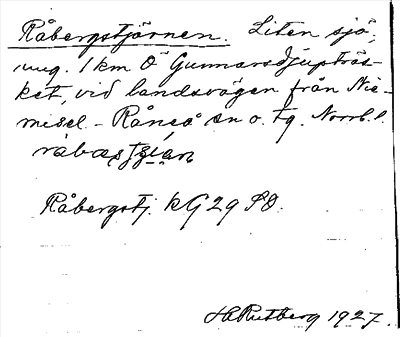 Råbergstjärnen. Liten sjö,
ung. 1 km Ö Gunnarsdjupträs-
ket, vid landsvägen från Nie-
misel. - Råneå sn o. tg. Norrb. l.
Råbergstj. kG 29 SO.
H. Rutberg 1927.